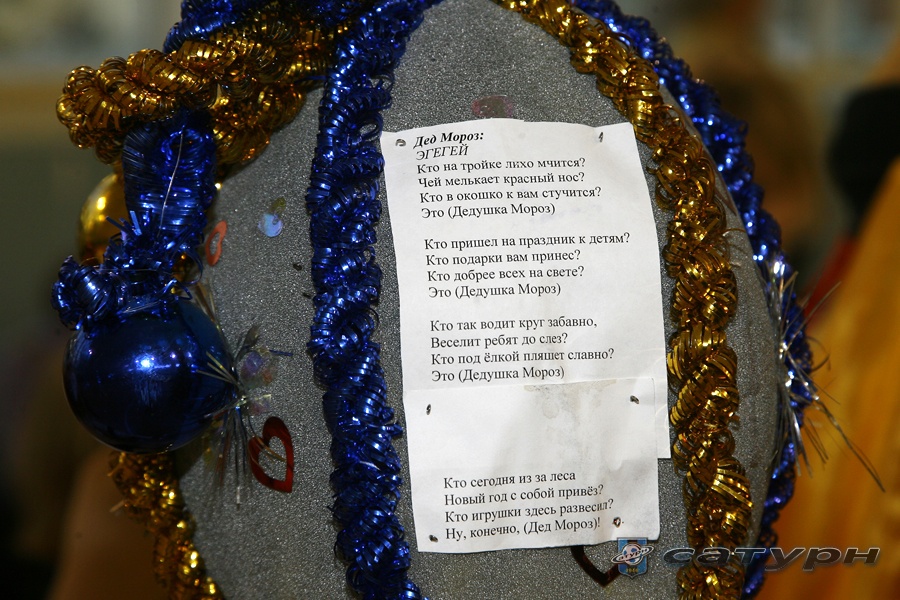 Дед Мороз:
ЭГЕГЕЙ
Кто на тройке лихо мчится?
Чей мелькает красный нос?
Кто в окошко к вам стучится?
Это (Дедушка Мороз)
Кто пришел на праздник к детям?
Кто подарки вам принес?
Кто добрее всех на свете?
Это (Дедушка Мороз)
Кто так водит круг забавно,
Веселит ребят до слез?
Кто под ёлкой пляшет славно?
Это (Дедушка Мороз)
Кто сегодня из за леса
Новый год с собой привёз?
Кто игрушки здесь развесил?
Ну, конечно, (Дед Мороз)!
сатурн